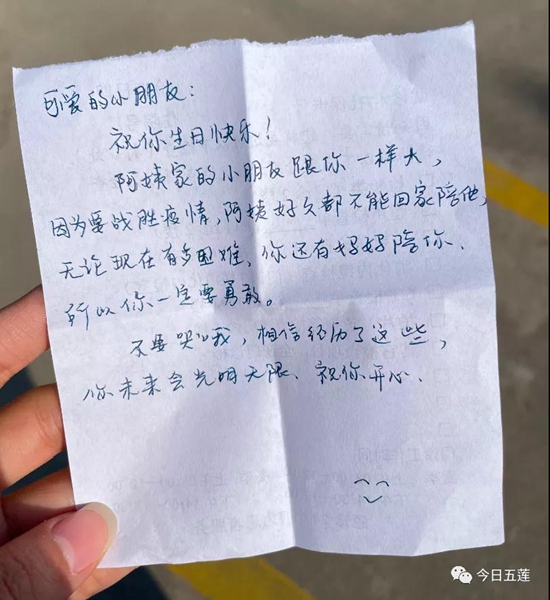 可爱的小朋友：
祝你生日快乐！
阿姨家的小朋友跟你一样大，
因为要战胜疫情，阿姨好久都不能回家陪他，
无论现在有多困难，你还有妈妈陪你、
所以你一定要勇敢。
不要哭哦，相信经历了这些，
你未来会光明无限、祝你开心、
今日五莲